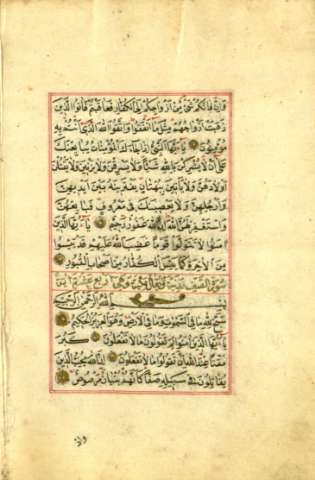 وَاِنْ فَاتَكُمْ شَىْءٌ مِنْ اَزْوَاجِكُمْ اِلَى الْكُفَّارِ فَعَاقَبْتُمْ فَاٰتُوا الَّذِينَ
ذَهَبَتْ اَزْوَاجُهُمْ مِثْلَ مَا اَنْفَقُوا وَاتَّقُوا اللّٰهَ الَّذِى اَنْتُمْ بِهِ
مُؤْمِنُونَ يَا اَيُّهَا النَّبِىُّ اِذَا جَاءَكَ الْمُؤْمِنَاتُ يُبَايِعْنَكَ
عَلٰى اَنْ لَا يُشْرِكْنَ بِاللّٰهِ شَيْئًا وَلَا يَسْرِقْنَ وَلَا يَزْنِينَ وَلَا يَقْتُلْنَ
اَوْلَادَهُنَّ وَلَا يَاْتِينَ بِبُهْتَانٍ يَفْتَرِينَهُ بَيْنَ اَيْدِيهِنَّ
وَاَرْجُلِهِنَّ وَلَا يَعْصِينَكَ فِى مَعْرُوفٍ فَبَايِعْهُنَّ
وَاسْتَغْفِرْ لَهُنَّ اللّٰهَ اِنَّ اللّٰهَ غَفُورٌ رَحِيمٌ يَا اَيُّهَا الَّذِينَ
اٰمَنُوا لَا تَتَوَلَّوْا قَوْمًا غَضِبَ اللّٰهُ عَلَيْهِمْ قَدْ يَئِسُوا
مِنَ الْاٰخِرَةِ كَمَا يَئِسَ الْكُفَّارُ مِنْ اَصْحَابِ الْقُبُورِ
سورة الصف وهى اربع عشرة آية
بِسْمِ اللّٰهِ الرَّحْمٰنِ الرَّحِيمِ
سَبَّحَ لِلّٰهِ مَا فِى السَّمٰوَاتِ وَمَا فِى الْاَرْضِ وَهُوَ الْعَزِيزُ الْحَكِيمُ
يَا اَيُّهَا الَّذِينَ اٰمَنُوا لِمَ تَقُولُونَ مَا لَا تَفْعَلُونَ كَبُرَ
مَقْتًا عِنْدَ اللّٰهِ اَنْ تَقُولُوا مَا لَا تَفْعَلُونَ اِنَّ اللّٰهَ يُحِبُّ الَّذِينَ
يُقَاتِلُونَ فِى سَبِيلِهِ صَفًّا كَاَنَّهُمْ بُنْيَانٌ مَرْصُوصٌ